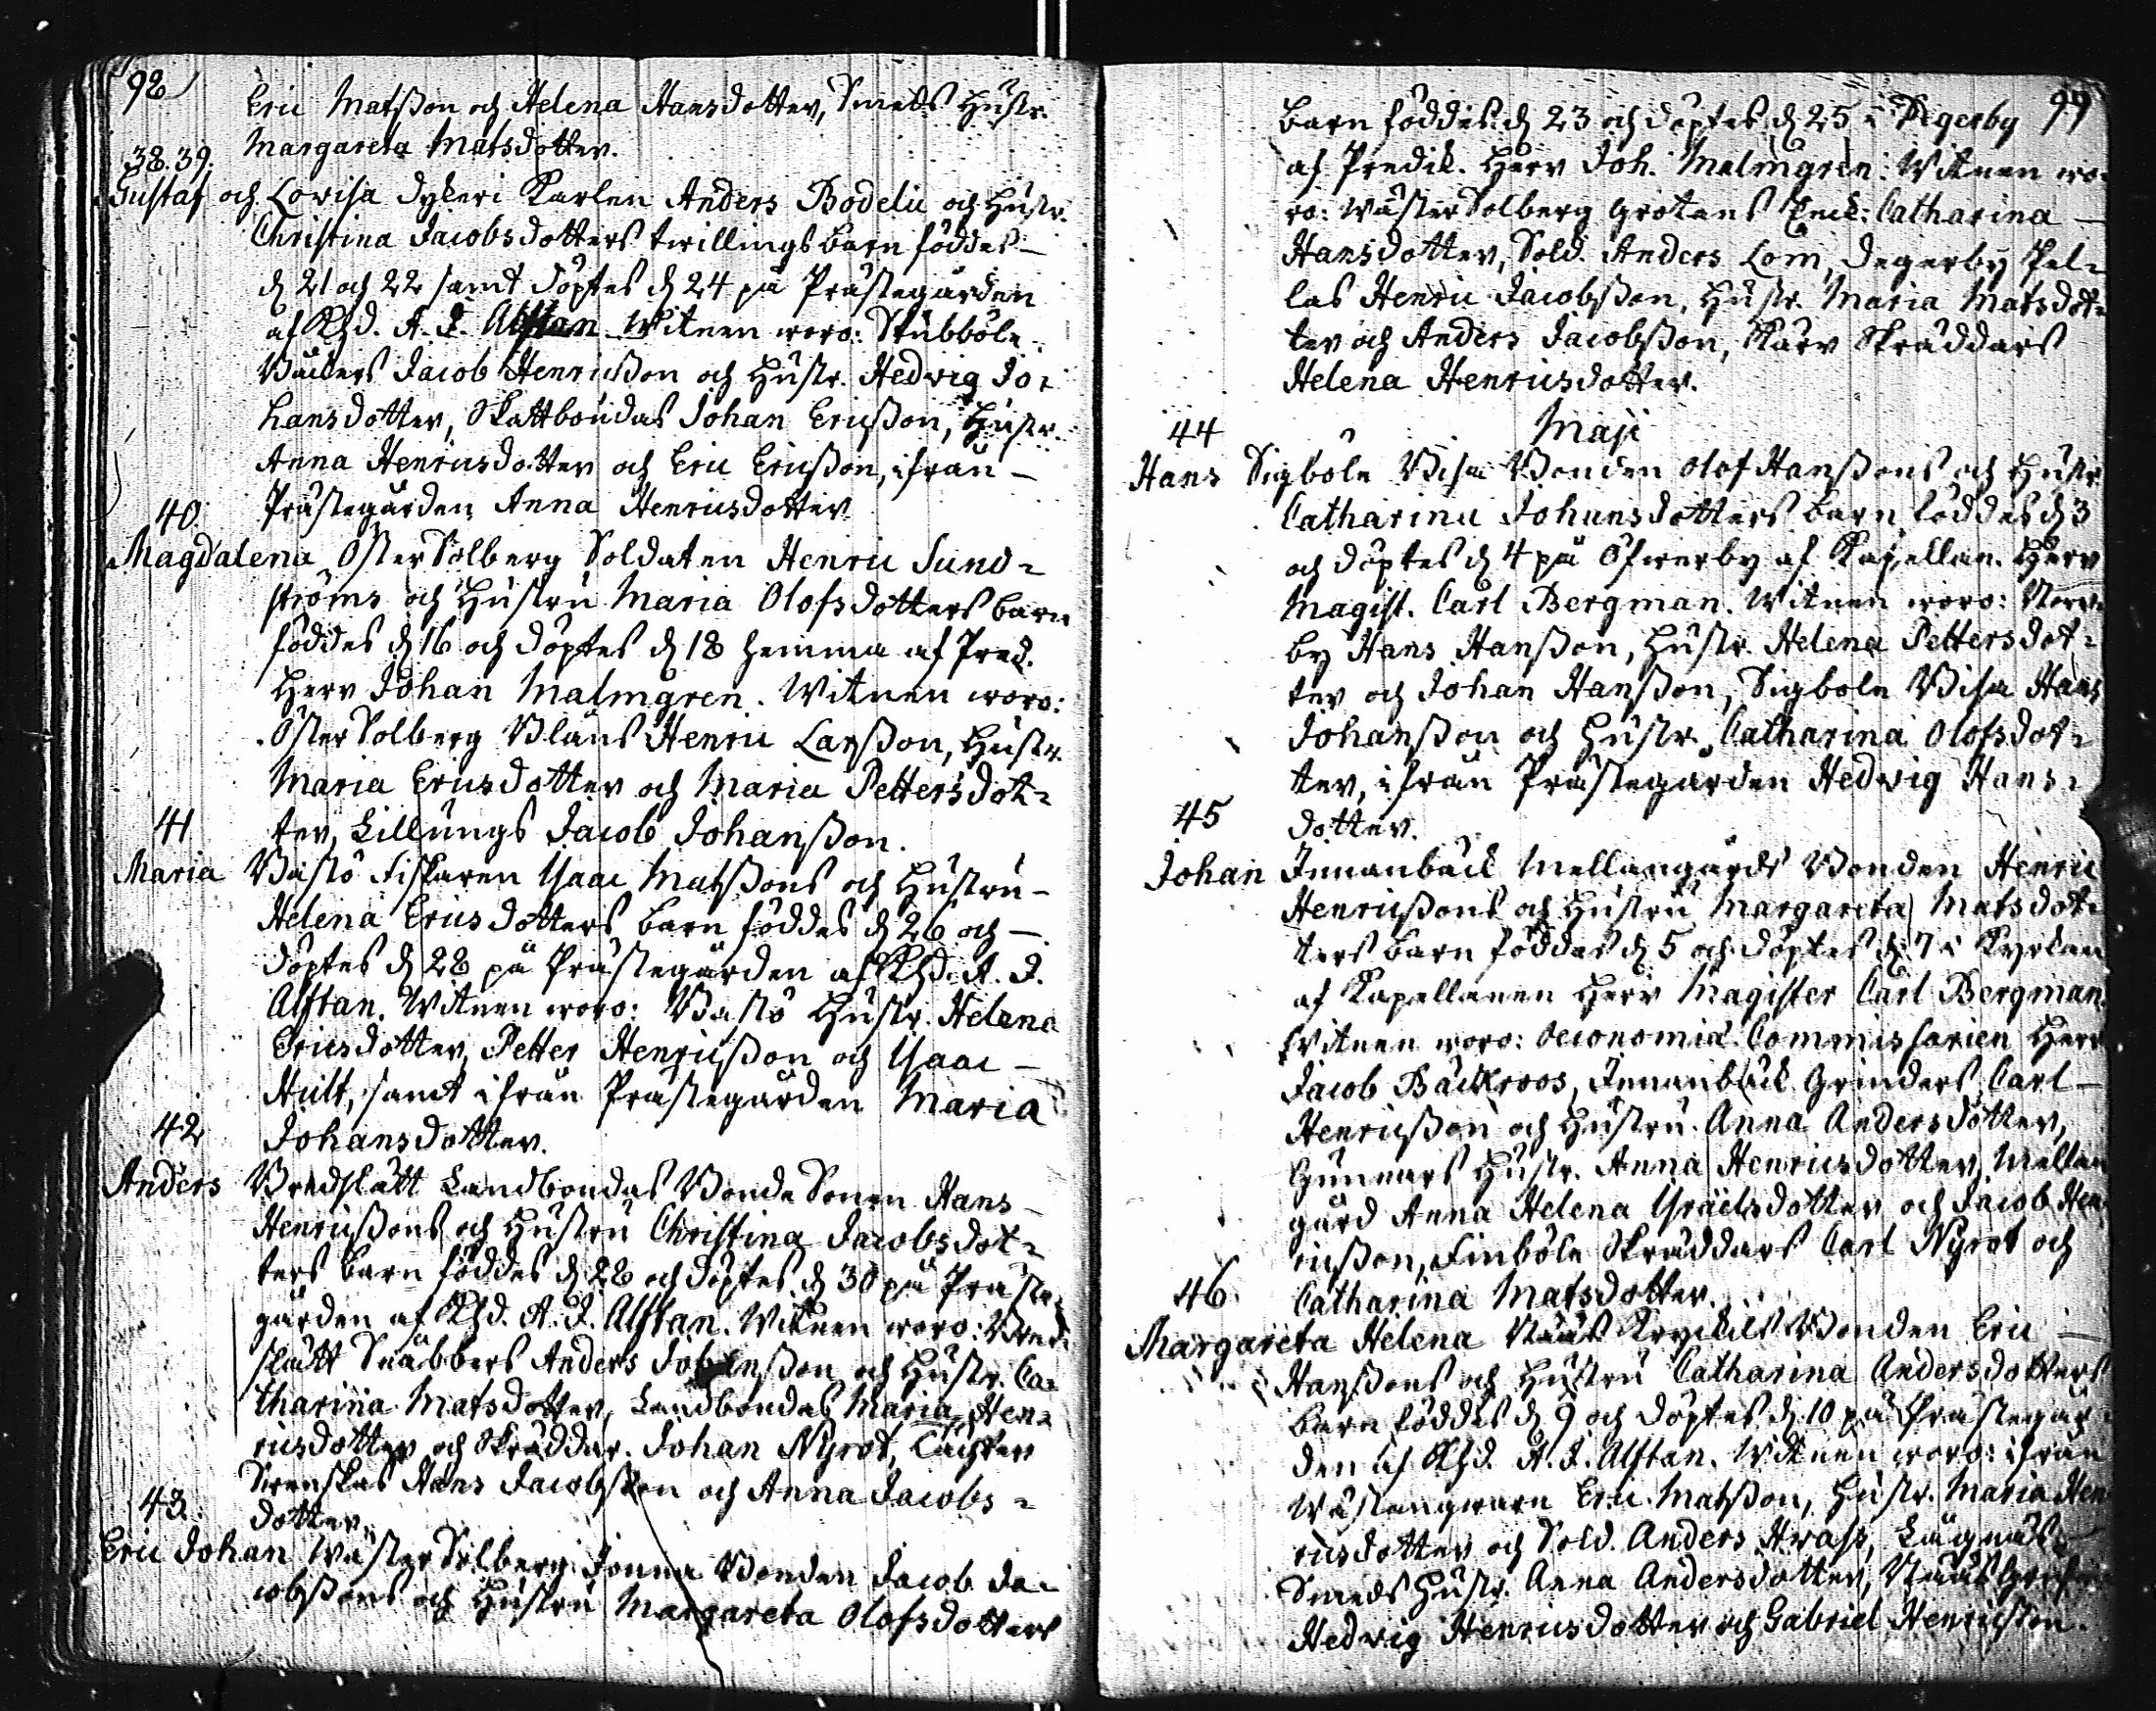 98
Eric Matsson och Helena Hansdotter, Smeds Hustr.
Margareta Matsdotter.
38. 39.
Gustaf och Lovisa Dykeri Karlen Anders Bodelii och Hustr.
Christina Jacobsdotters twillings barn föddes
d 21 och 22 samt döptes d 24 på Prästegården
af Khd. A. J. Alftan. Witnen woro: Stubböle
Jacob Henricsson och Hustr. Hedvig Jo-
hansdotter, Skattbondas Johan Ericsson, Hustr.
Anna Henricsdotter och Eric Ericsson, ifrån
Prästegården Anna Henricsdotter
40.
Magdalena Öster Solberg Soldaten Henric Sund-
ströms och Hustru Maria Olofsdotters barn
föddes d 16 och döptes d 18 hemma af Pred.
Herr Johan Malmgren. Witnen woro:
Öster Solberg Blåns Henric Larsson, Hustr.
Maria Ericsdotter och Maria Pettersdot-
41
ter, Lillungs Jacob Johansson.
Maria Bastö Fiskaren Isaac Matssons och Hustru
Helena Ericsdotters barn föddes d 26 och
döptes d 28 på Prästegården af Khd. A. J.
Alftan. Witnen woro: Bastö Hustr. Helena
Ericsdotter, Petter Henricsson och Isaac
Hult, samt ifrån Prästegården Maria
42
Johansdotter.
Anders Bredslätt Landbondas Bonde Sonen Hans
Henricssons och Hustru Christina Jacobsdot-
ters barn föddes d 28 och döptes d 30 på Präste-
gården af Khd. A. J. Alftan. Witnen woro: Bred-
slätt Snäbbers Anders Johansson och Hustr. Ca-
tharina Matsdotter, Landbondas Maria Hen-
ricsdotter och Skräddar. Johan Nyrot,
Svenskas Hans Jacobsson och Anna Jacobs-
43.
dotter.
Eric Johan Wäster Solberg Jonna Bonden Jacob Ja-
cobssons och Hustru Margareta Olofsdotters
99
barn föddes d 23 och döptes d 25 i Degerby
af Predik. Herr Joh. Malmgren: Witnen wo-
ro: Wäster Solberg Grotens Enck: Catharina
Hansdotter, Sold. Anders Lom, Degerby Pel-
las Henric Jacobsson, Hustr. Maria Matsdot-
ter och Anders Jacobsson, Kärr Skräddars
Helena Henricsdotter.
44
Maji
Hans Sigböle Bisa Bonden Olof Hanssons och Hustr
Catharina Johansdotters barn föddes d 3
och döptes d 4 på Öfwerby af Kapellan. Herr
Magist. Carl Bergman. Witnen woro: Norr-
by Hans Hansson, Hustr. Helena Pettersdot-
ter och Johan Hansson, Sigböle Bisa Hans
Johansson och Hustr. Catharina Olofsdot-
ter, ifrån Prästegården Hedvig Hans-
45
dotter.
Johan Innanbäck Mellangårds Bonden Henric
Henricssons och Hustru Margareta Matsdot-
ters barn föddes d 5 och döptes d 7 i Kyrkan
af Kapellanen Herr Magister Carl Bergman
Witnen woro: Oeconomiæ Commissarien Herr
Jacob Bäckroos, Innanbäck Grinders Carl
Henricsson och Hustru Anna Andersdotter,
Gunnars Hustr. Anna Henricsdotter, Mellan
gård Anna Helena Israelsdotter och Jacob Hen
ricsson, Finböle Skräddars Carl Nyrot och
46.
Catharina Matsdotter.
Margareta Helena Näsäs Bonden Eric
Hanssons och Hustru Catharina Andersdotters
barn föddes d 9 och döptes d 10 på Prästegår-
den af Khd. A. J. Alftan. Witnen woro: ifrån
Wästangwarn Eric Matsson, Hustr. Maria Hen
ricsdotter och Sold. Anders Hwass, Lågnäs
Smeds Hustr. Anna Andersdotter,
Hedvig Henricsdotter och Gabriel Henricsson.